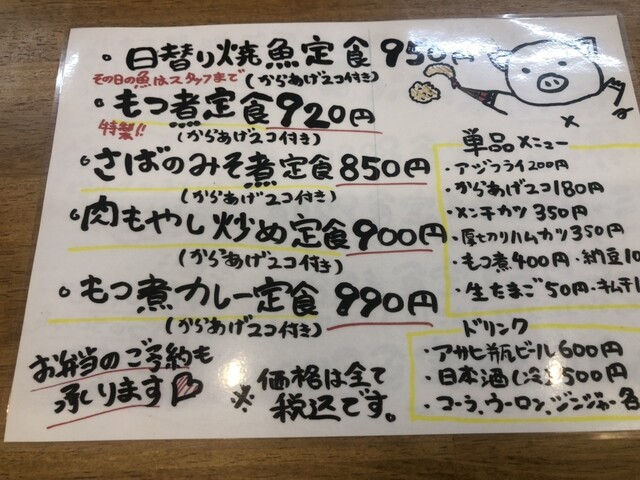 ・日替り焼魚定食 950円
その日の魚はスタッフまで
(からあげ2コ付き)
・もつ煮定食 920円
特製!!
(からあげ2コ付き)
・さばのみそ煮定食 850円
(からあげ2コ付き)
・肉もやし炒め定食 900円
(からあげ2コ付き)
・もつ煮カレー定食 990円
(からあげ2コ付き)
お弁当のご予約も
承ります
※価格は全て
税込です。
単品メニュー
・アジフライ200円
・からあげ2コ180円
・メンチカツ 350円
・厚切りハムカツ350円
・もつ煮400円・納豆10
・生たまご50円・キムチ1
ドリンク
・アサヒ瓶ビール600円
・日本酒(冷)500円
・コーラ、ウーロン、ジンジャー各